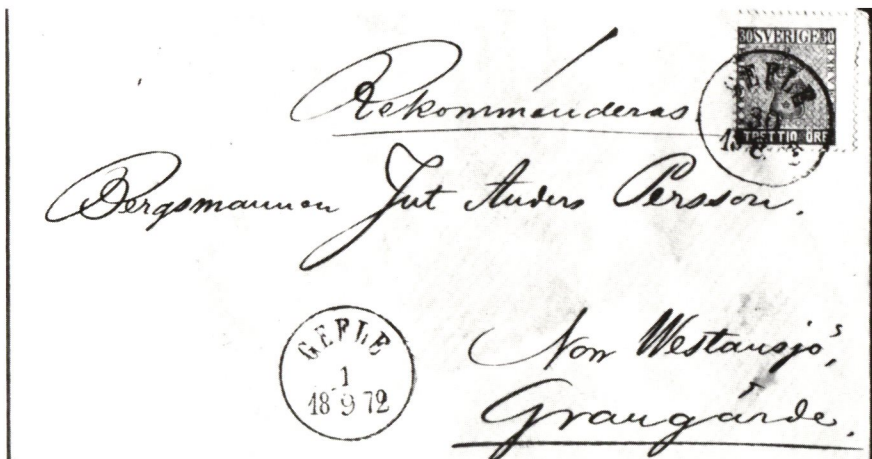 30 SVERIGE 30
TRETTIO ÖRE
GEFLE
30
Rekommenderas
Bergsmannen Jut Anders Persson.
GEFLE
1
18 9 72
Norr Westansjö,
Grangärde.